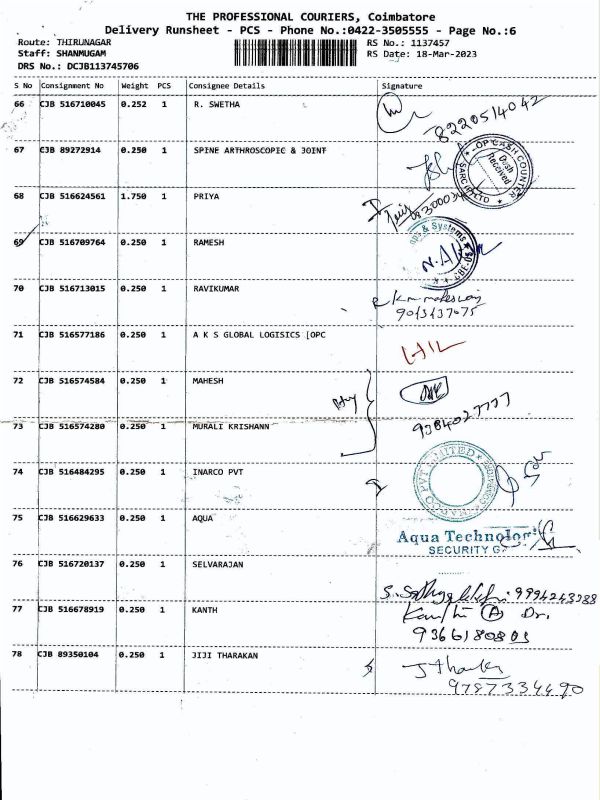 THE PROFESSIONAL COURIERS, Coimbatore
Delivery Runsheet - PCS - Phone No.:0422-3505555 - Page No.:6
Route: THIRUNAGAR RS No.: 1137457
Staff: SHANMUGAM RS Date: 18-Mar-2023
DRS No.: DCJB113745706
S No Consignment No Weight PCS Consignee Details Signature
66 CJB 516710045 0.252 1 R. SWETHA
8220514042
67 CJB 89272914 0.250 1 SPINE ARTHROSCOPIC & JOINT
OP CASH COUNTER
Cash Received
68 CJB 516624561 1.750 1 PRIYA
69 CJB 516709764 0.250 1 RAMESH
& Systems
70 CJB 516713015 0.250 1 RAVIKUMAR
71 CJB 516577186 0.250 1 A K S GLOBAL LOGISICS [OPC
72 CJB 516574584 0.250 1 MAHESH
9384027777
73 CJB 516574280 0.250 1 MURALI KRISHANN
74 CJB 516484295 0.250 1 INARCO PVT
PVT LIMITED
75 CJB 516629633 0.250 1 AQUA
Aqua Technolog
SECURITY
76 CJB 516720137 0.250 1 SELVARAJAN
77 CJB 516678919 0.250 1 KANTH
9366180803
78 CJB 89350104 0.250 1 JIJI THARAKAN
9787334490